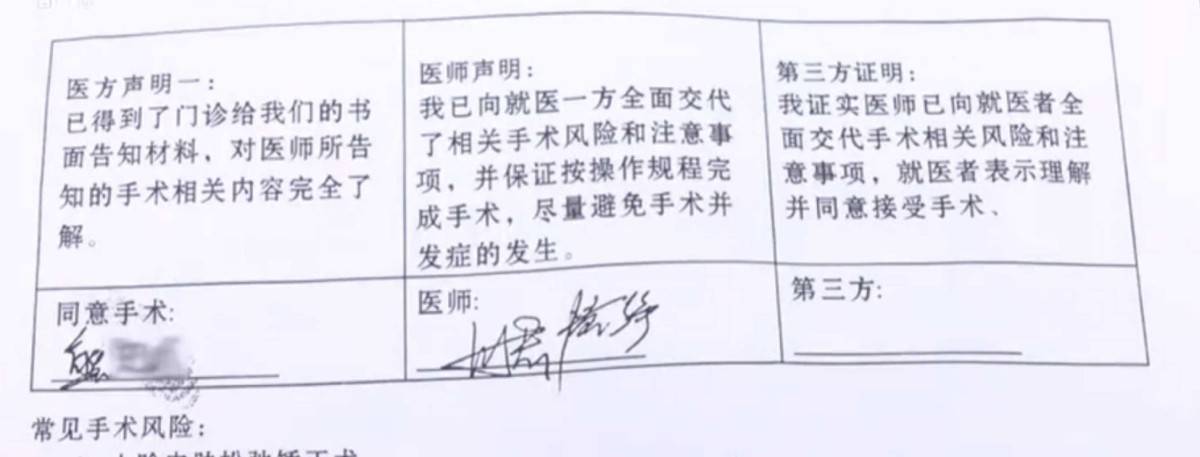 医方声明一：
已得到了门诊给我们的书
面告知材料，对医师所告
知的手术相关内容完全了
解。
医师声明：
我已向就医一方全面交代
了相关手术风险和注意事
项，并保证按操作规程完
成手术，尽量避免手术并
发症的发生。
第三方证明：
我证实医师已向就医者全
面交代手术相关风险和注
意事项，就医者表示理解
并同意接受手术、
同意手术：
熊
医师：
第三方：
常见手术风险：